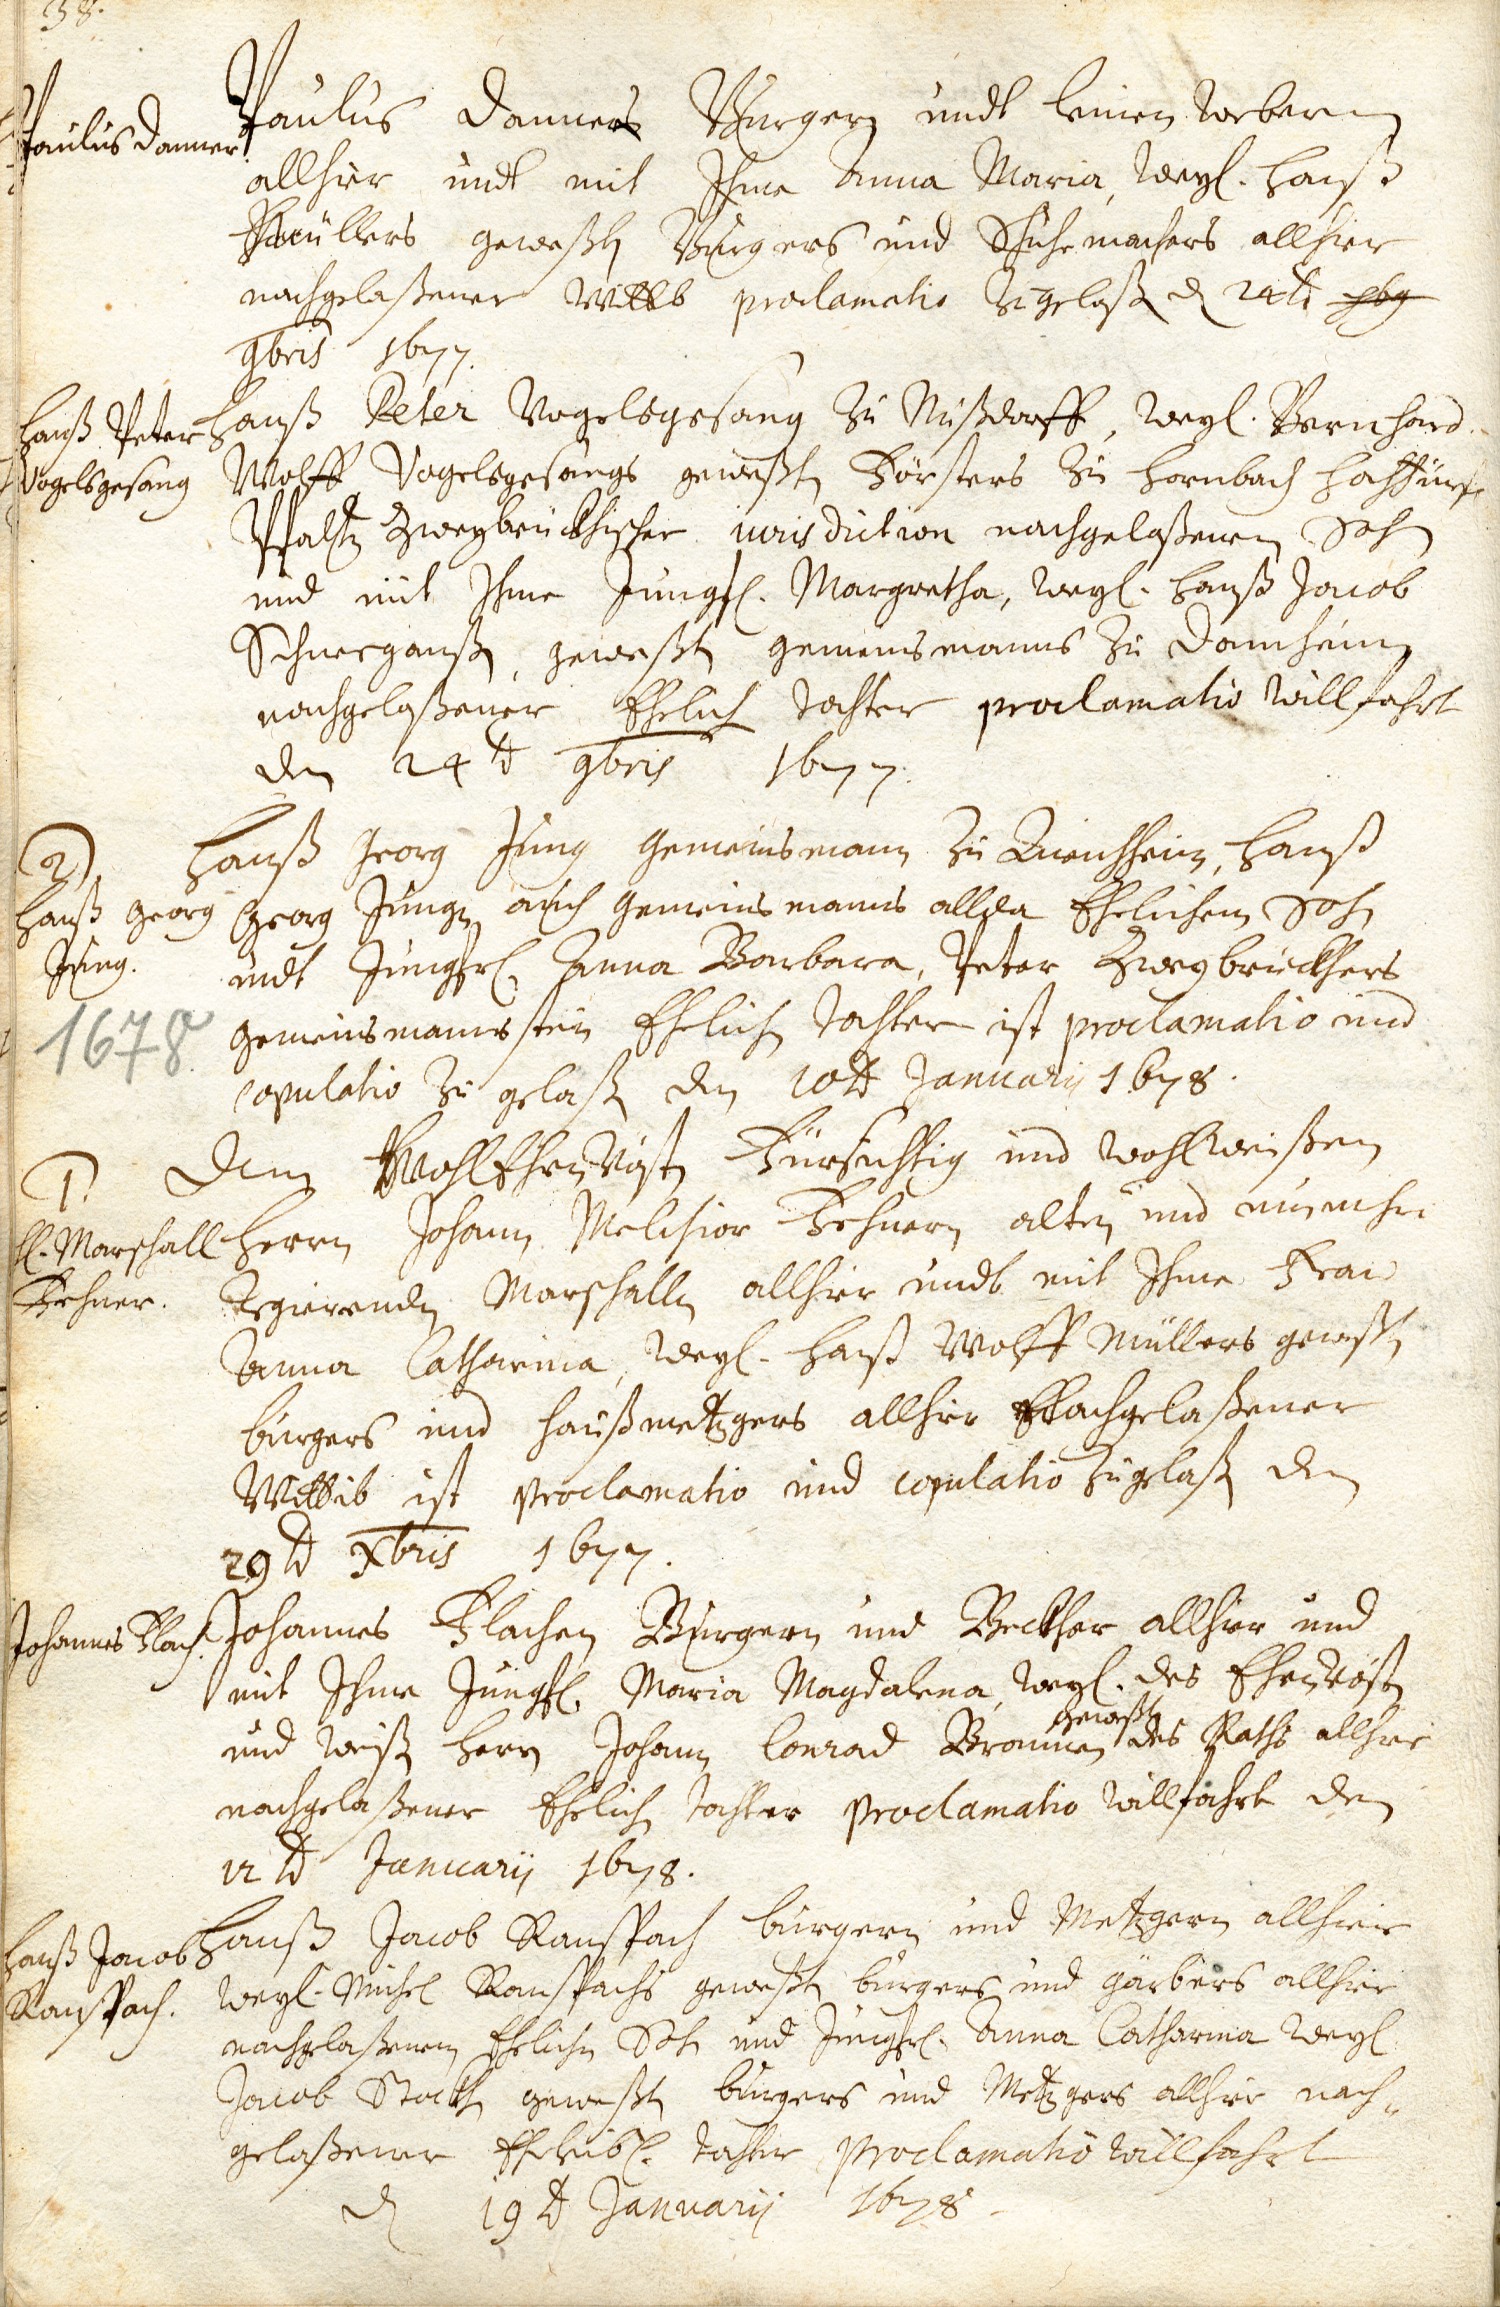 38.
Paulus Danner
Paulus Danners Burgern undt leinen Webern
allhier undt mit Ihme Anna Maria, Weyl. Hanß
Müllers geweßen Burgers und Schuhmachers allhier
nachgelaßener Wittib proclamatio zugelaß d 24t
9bris 1677.
Hanß Peter
Vogelsgesang
Hanß Peter Vogelsgesang zu Nußdorff, Weyl. Bernhard
Wolff Vogelsgesangs geweßen Försters zu Hornbach Hochfürst
Pfaltz Zweybrückhischer jurisdiction nachgelaßenen Sohn
und mit Ihme Jungfl. Margretha, Weyl. Hanß Jacob
Schneeganß, geweßen gemeinsmanns zu Damheim
nachgelaßener Ehelich Tochter proclamatio willfahrt
den 24t 9bris 1677.
2)
Hanß Georg
Jung.
1678
Hanß Georg Jung gemeinsmann zu Queichheim, Hanß
Georg Jungen auch gemeinsmanns allda Ehelichen Sohn
undt Jungfrl. Anna Barbara, Peter Zweybrückhers
gemeinsmanns Ehelich Tochter ist proclamatio und
copulatio zu gelaß den 10t Januarij 1678.
1.
H. Marschall
Fehner.
Dem WohlEhrnVöst Fürsichtig und wohlweißen
Herrn Johann Melchior Fehnern alten und nunmehr
Regierenden Marschalln allhier undt mit Ihme Frau
Anna Catharina, Weyl. Hanß Wolff Müllers geweßen
burgers und Haußmetzgers allhier Nachgelaßener
Wittib ist proclamatio und copulatio zugelaß den
29t Xbris 1677.
Johannes Flach.
Johannes Flachen Burgern und Beckher allhier und
mit Ihme Jungfl. Maria Magdalena, Weyl. des EhrnVöst
und weiß Herrn Johann Conrad geweßen des Raths allhier
nachgelaßener Ehelich Tochter proclamatio willfahrt den
12t Januarij 1678.
Hanß Jacob
Ranspach.
Hanß Jacob Ranspach burgern und Metzgern allhier
Weyl. Michel Ranspachs geweßen burgers und gärbers allhier
nachgelaßenen Ehelichen Sohn und Jungfrl. Anna Catharina Weyl
Jacob Stockh geweßen burgers und Metzgers allhier nach-
gelaßener Eheleibl. Tochter proclamatio willfahrt
d 19t Januarij 1678.